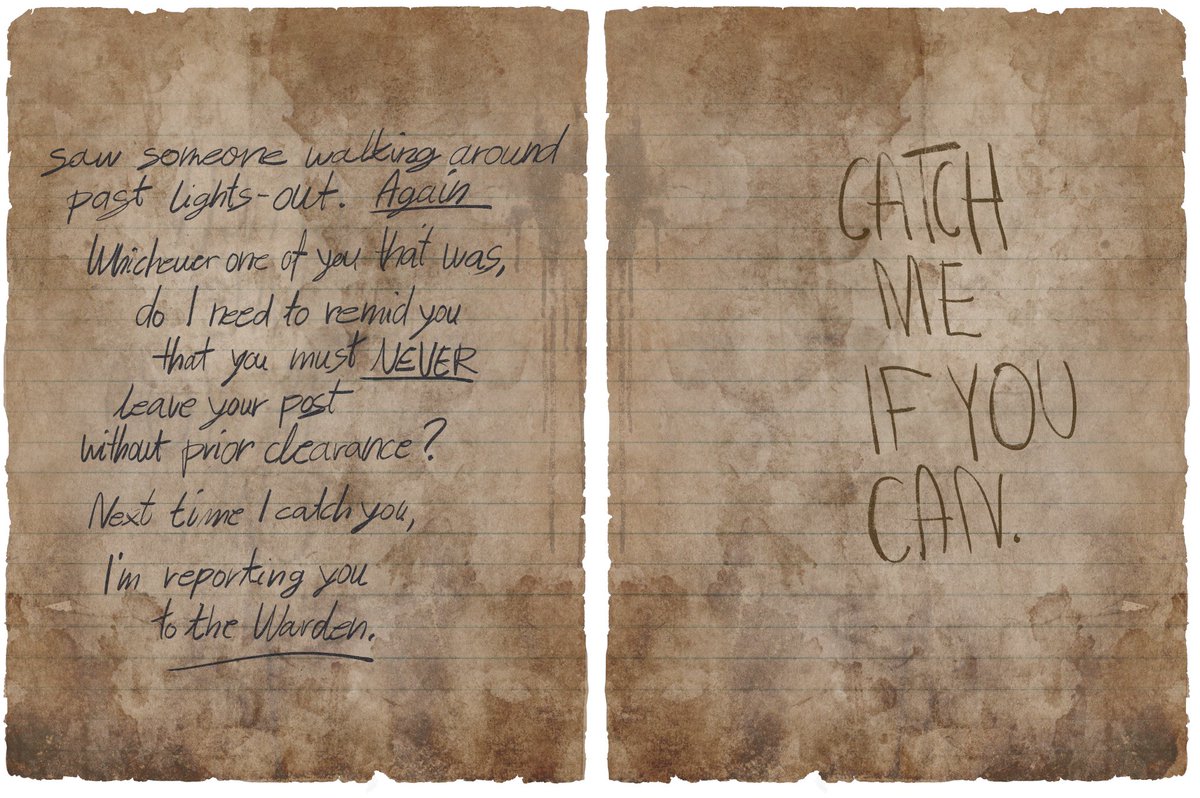 saw someone walking around
past lights-out. Again
Whichever one of you that was,
do I need to remid you
that you must NEVER
leave your post
without prior clearance?
Next time I catch you,
I'm reporting you
to the Warden.
CATCH
ME
IF YOU
CAN.